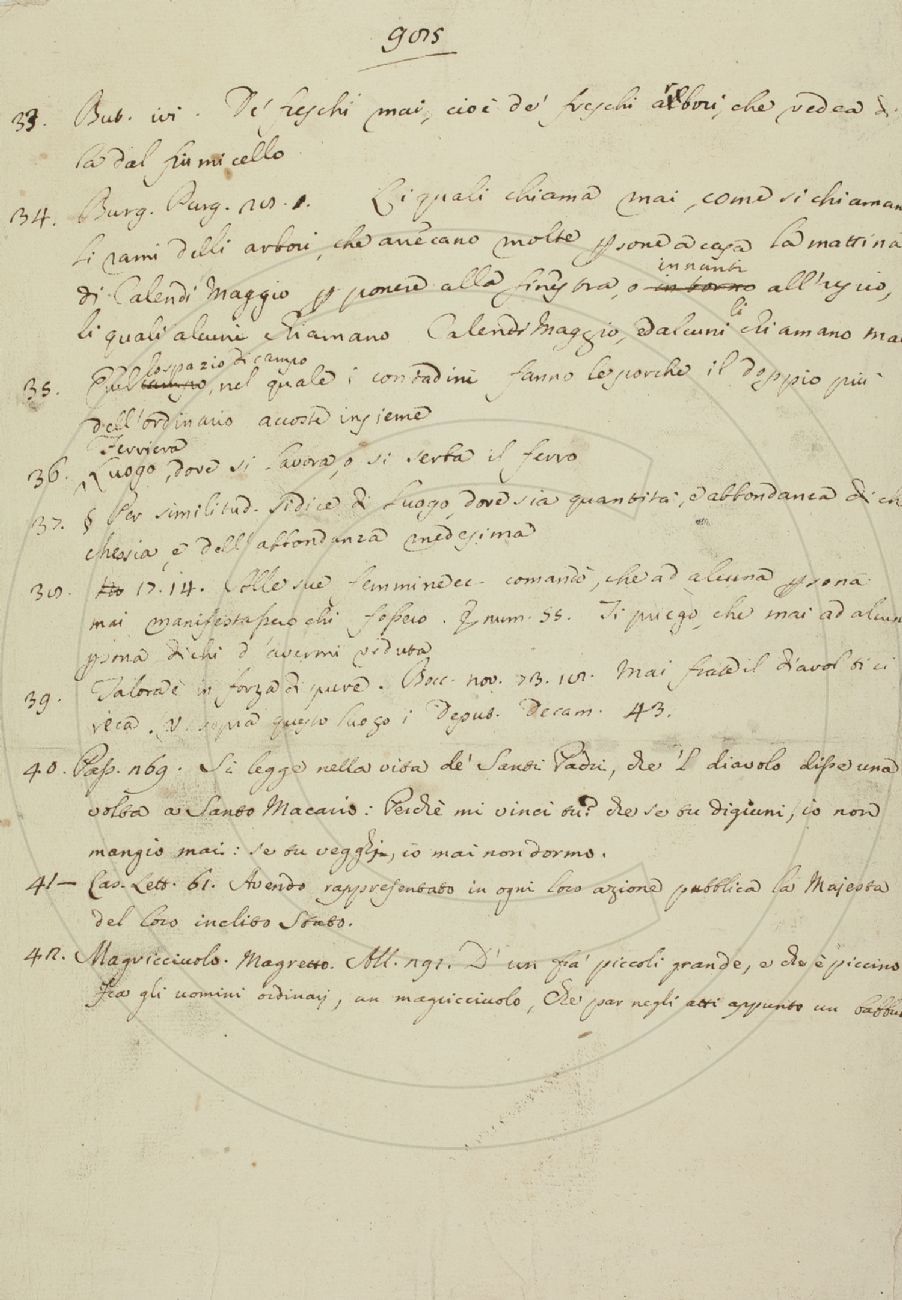 985
33. But. ivi. De' freschi mai, cioè de' freschi albori, che vedea di
là dal fiumicello
34. Burg. Purg. 28. 1. Li quali chiama mai, come si chiaman
li rami delli arbori, che arrecano molte psone a casa la mattina
innanti
di Calendi Maggio p ponere alla finestra, o in torno all'uscio,
li
li quali alcuni chiamano Calendi Maggio, ed alcuni chiamano mai
lo spazio di campo
35. Quel campo, nel quale i contadini fanno le porche il doppio più
dell'ordinario accoste insieme
Ferriera
36. Luogo, dove si lavora, o si serba il ferro
37. § Per similitud. si dice di Luogo, dove sia quantità, e abbondanza di ch
chessia, e dell'abbondanza medesima
38. 17. 14. Alle sue femmine ec. comandò, che ad alcuna psona
mai manifestassero chi fossero. E num. 55. Ti priego, che mai ad alcun
psona dichi d'avermi veduta
39. Talora è in forza di pure. Bocc. nov. 73. 18. Mai frate il diavol ti ci
reca. V. sopra questo luogo i Deput. Decam. 43.
40. Pass. 269. Si legge nella vita de' Santi Padri, che 'l diavolo disse una
volta a Santo Macario: Perchè mi vinci tu? che se tu digiuni, io non
mangio mai: se tu vegghj, io mai non dormo.
41 — Cas. Lett. 61. Avendo rappresentato in ogni loro azione pubblica la Majestà
del loro inclito Stato.
42. Magricciuolo. Magretto. All. 291. D' un fra' piccoli grande, e che è piccino
Fra gli uomini ordinarj, un magricciuolo, Che par negli atti appunto un babbu